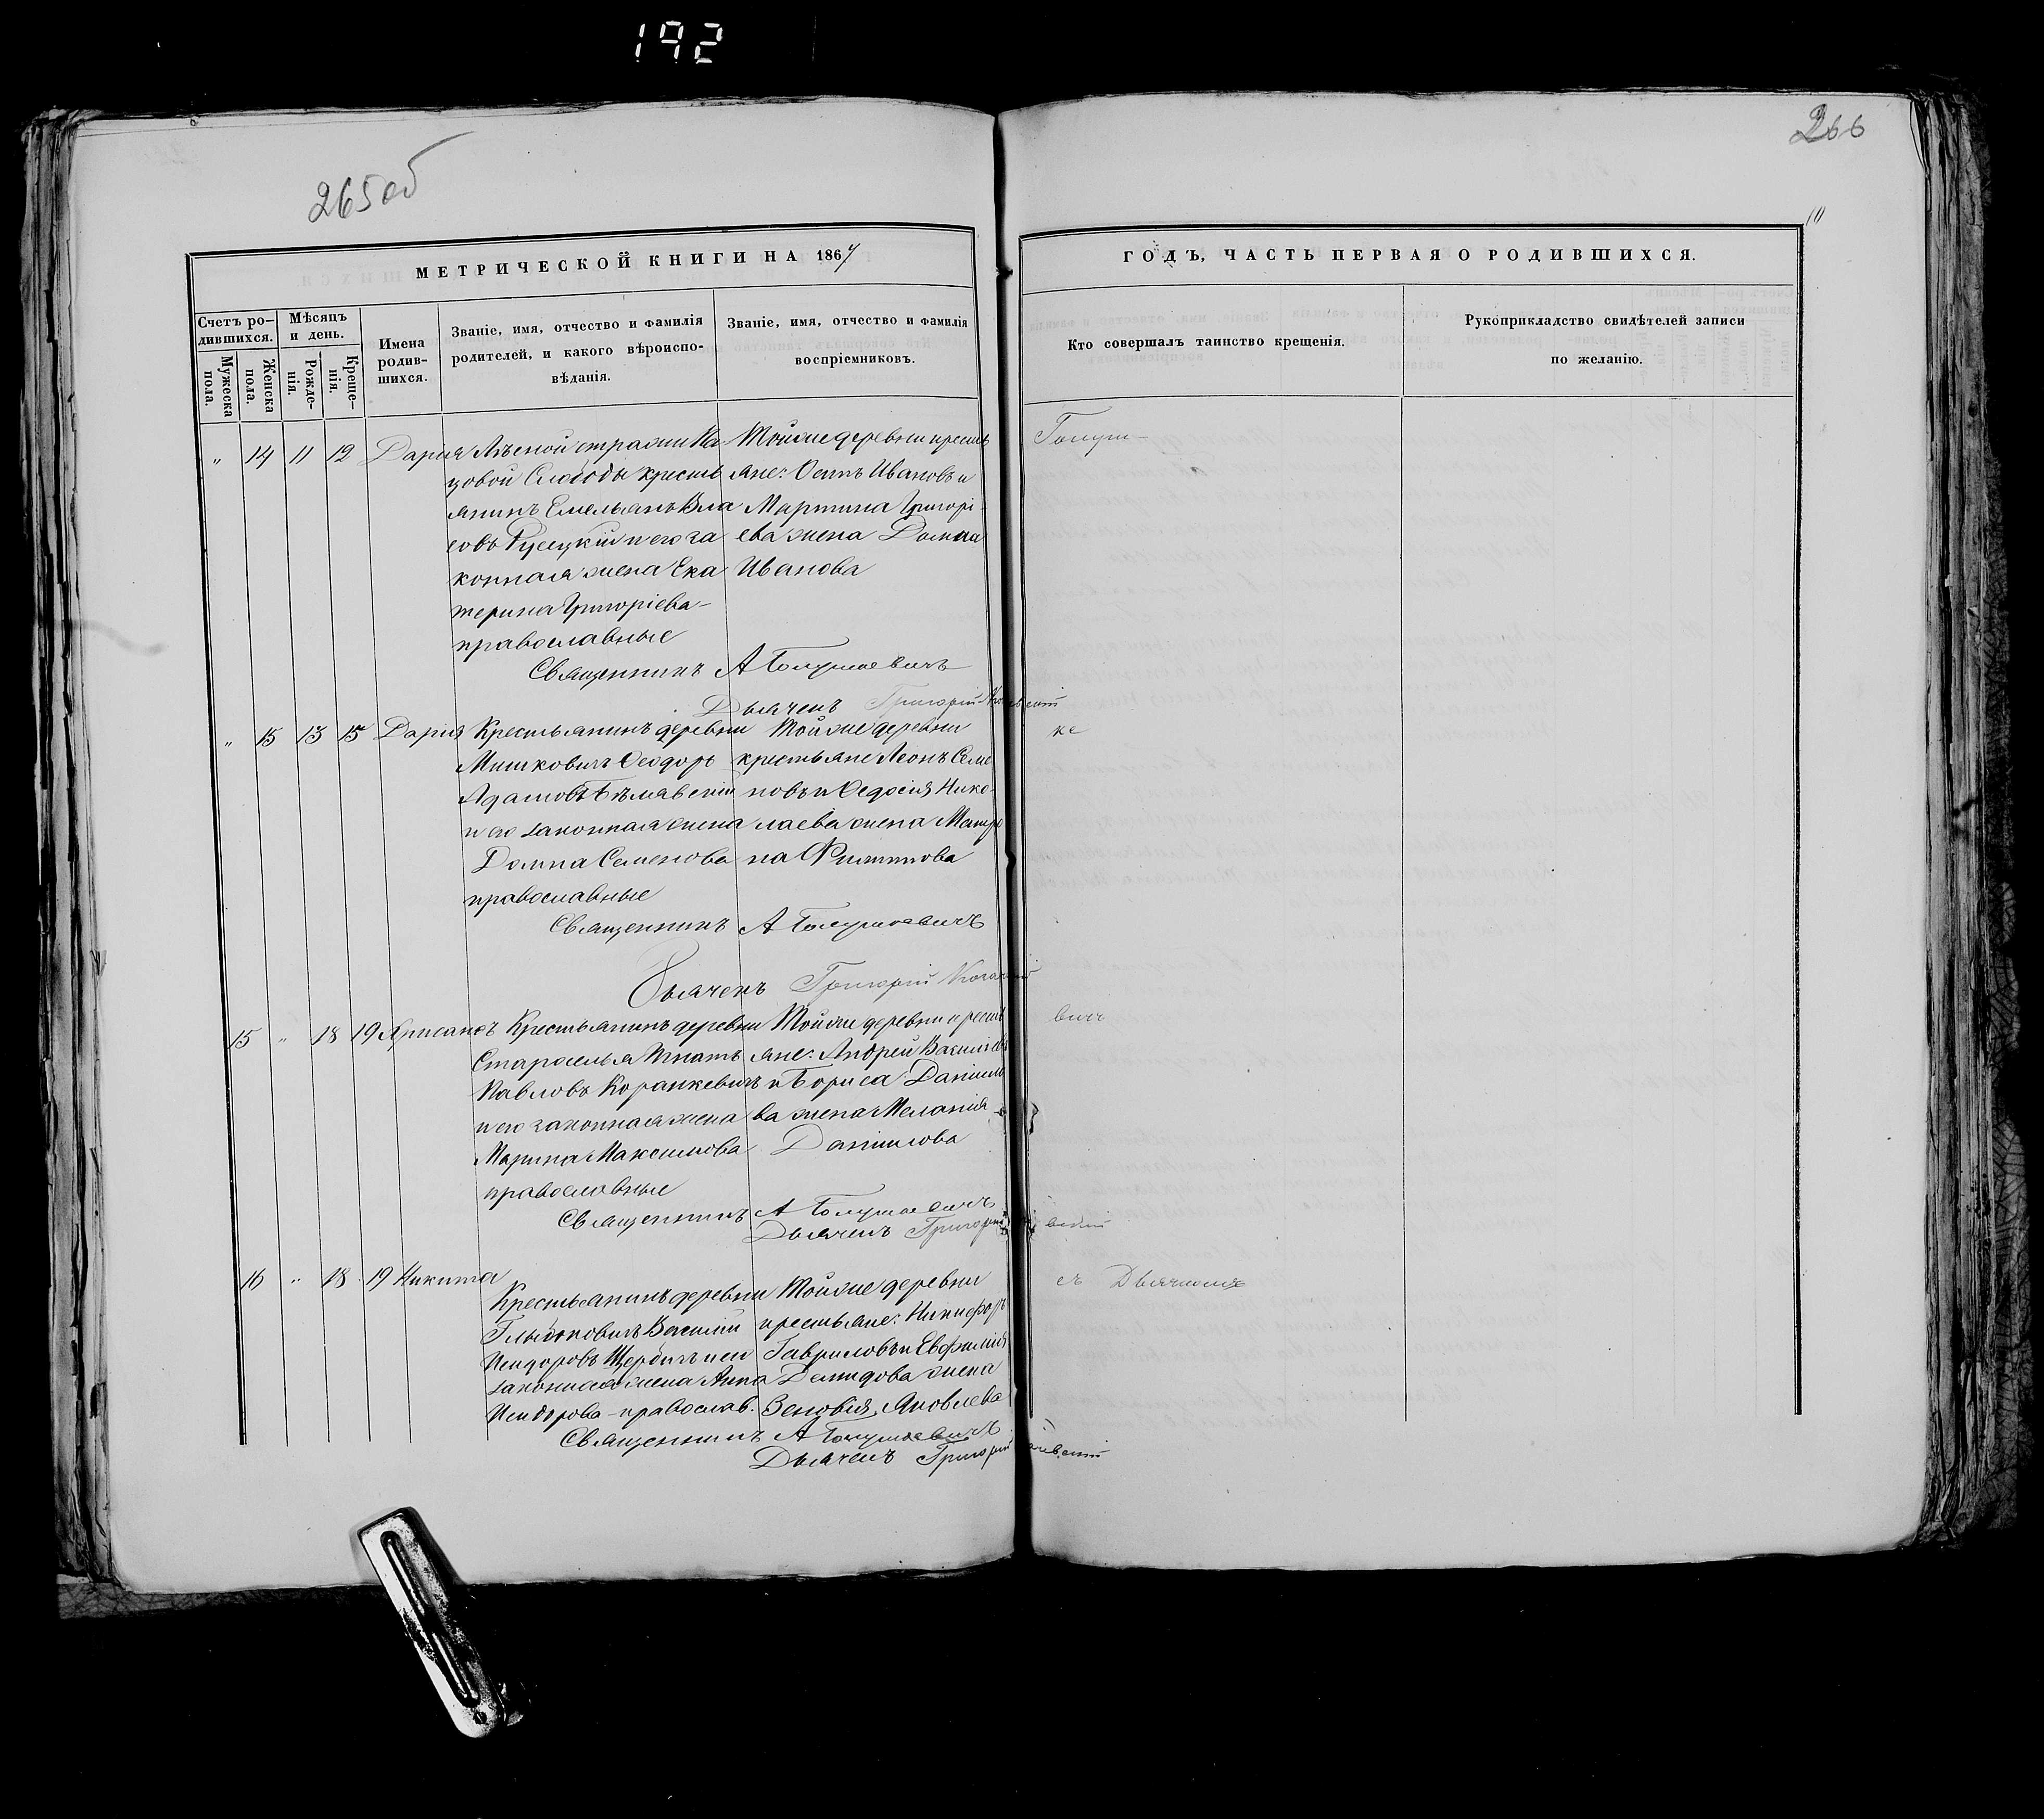 192
265 об
266
МЕТРИЧЕСКОЙ КНИГИ НА 1867
ГОДЪ, ЧАСТЬ ПЕРВАЯ О РОДИВШИХСЯ.
Счетъ ро-
дившихся.
Мужеска
пола.
Женска
пола.
Мѣсяцъ
и день.
Рожде-
нія.
Креще-
нія.
Имена
родив-
шихся.
Званіе, имя, отчество и фамилія
родителей, и какого вѣроиспо-
вѣданія.
Званіе, имя, отчество и фамилія
воспріемниковъ.
Кто совершалъ таинство крещенія.
Рукоприкладство свидѣтелей записи
по желанію.
„ 14 11 12 Дарія
Лѣсной стражи Ка
цовой Слободы кресть
янинъ Емельянъ Вла
совъ Русецкій и его за
конная жена Ека
терина Григоріева-
православные
Тойже деревни кресть
яне: Осипъ Ивановъ и
Мартина Григорі-
ева жена Домна
Иванова
Голуш-
Священникъ А Голушкевичъ
Дьячекъ Григорій
„ 15 13 15 Дарія
Крестьянинъ деревни
Мишковичъ Ѳеодоръ
Адамовъ Бѣлявскій
и его законная жена
Домна Семенова
православные
Тойже деревни
крестьяне Леонъ Семе
новъ и Ѳедосія Нико-
лаева жена Матре
на Филиппова
ке
Священникъ А Голушкевичъ
Дьячекъ Григорій
15 „ 18 19
Крестьянинъ деревни
Староселья Игнатъ
Павловъ Коранкевичъ
и его законная жена
Марина Максимова
православные
Тойже деревни кресть
яне: Андрей Василіевъ
и Бориса Даніило
ва жена Меланія
Даніилова
вичъ
Священникъ А Голушкевичъ
Дьячекъ Григорій
16 „ 18 19 Никита
Крестьянинъ деревни
Глыбоковичъ Василій
Исидоровъ Щербичъ и его
законная жена Анна
Исидорова - православ.
Тойже деревни
крестьяне: Никифоръ
Гавриловъ и Евфимія
Демидова жена
Зеновія Яковлева
съ Дьячкомъ
Священникъ А Голушкевичъ
Дьячекъ Григорій